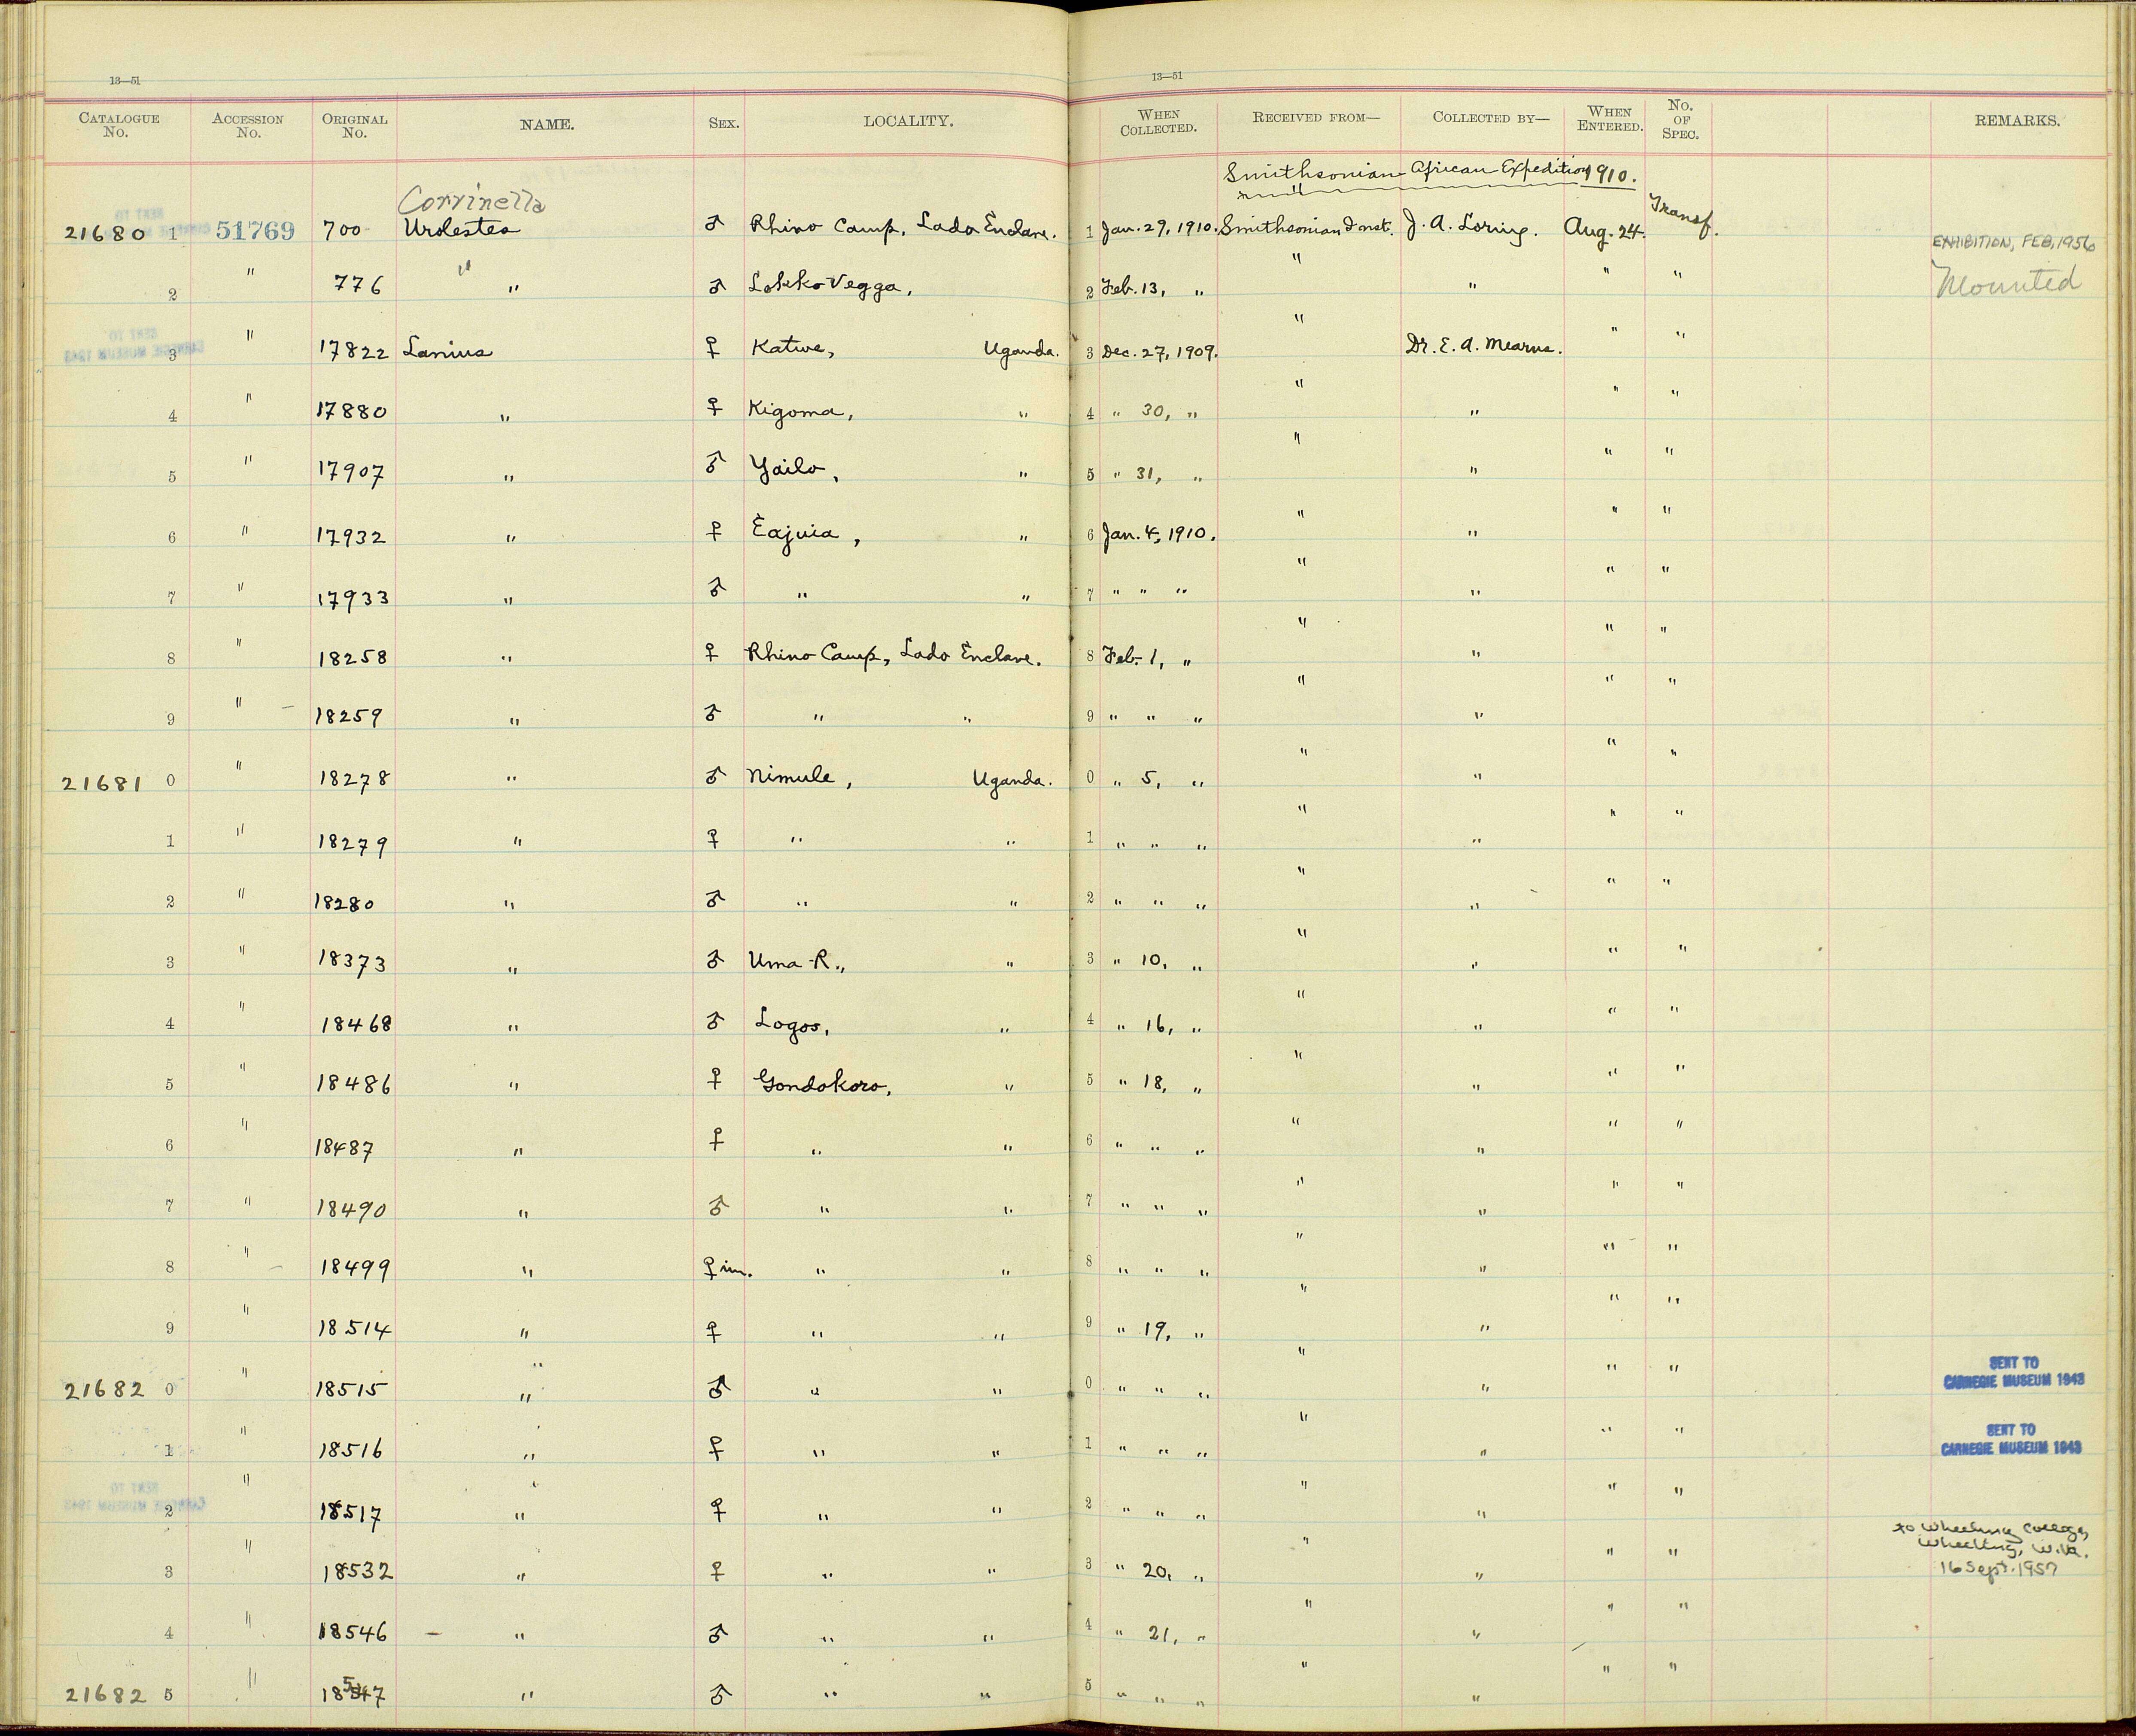 13—51
13—51
CATALOGUE No. ACCESSION No. ORIGINAL No. NAME. SEX. LOCALITY. WHEN COLLECTED. RECEIVED FROM— COLLECTED BY— WHEN ENTERED. No. OF SPEC. REMARKS.
Smithsonian African Expedition 1910.
Corvinella
21680 1 51769 700 Urolestes ♂ Rhino Camp, Lado Enclave. 1 Jan. 29, 1910. Smithsonian Inst. J. A. Loring. Aug. 24. Transf. EXHIBITION, FEB, 1956
2 " 776 " ♂ Lokko Vegga, 2 Feb. 13, " " " " " Mounted
3 " 17822 Lanius ♀ Katwe, Uganda. 3 Dec. 27, 1909. " Dr. E. A. Mearns. " "
4 " 17880 " ♀ Kigoma, " 4 " 30, " " " " "
5 " 17907 " ♂ Yailo, " 5 " 31, " " " " "
6 " 17932 " ♀ Eajuia, " 6 Jan. 4, 1910. " " " "
7 " 17933 " ♂ " " 7 " " " " " " "
8 " 18258 " ♀ Rhino Camp, Lado Enclave. 8 Feb. 1, " " " " "
9 " 18259 " ♂ " " 9 " " " " " " "
21681 0 " 18278 " ♂ Nimule, Uganda. 0 " 5, " " " " "
1 " 18279 " ♀ " " 1 " " " " " " "
2 " 18280 " ♂ " " 2 " " " " " " "
3 " 18373 " ♂ Uma R., " 3 " 10, " " " " "
4 " 18468 " ♂ Logos, " 4 " 16, " " " " "
5 " 18486 " ♀ Gondokoro, " 5 " 18, " " " " "
6 " 18487 " ♀ " " 6 " " " " " " "
7 " 18490 " ♂ " " 7 " " " " " " "
8 " 18499 " ♀ im. " " 8 " " " " " " "
9 " 18514 " ♀ " " 9 " 19, " " " " "
21682 0 " 18515 " ♂ " " 0 " " " " " " " SENT TO CARNEGIE MUSEUM 1943
1 " 18516 " ♀ " " 1 " " " " " " " SENT TO CARNEGIE MUSEUM 1943
2 " 18517 " ♀ " " 2 " " " " " " "
to Wheeling College,
Wheeling, W.Va.
3 " 18532 " ♀ " " 3 " 20, " " " " " 16 Sept. 1957
4 " 18546 " ♂ " " 4 " 21, " " " " "
21682 5 " 18547 " ♂ " " 5 " " " " " " "